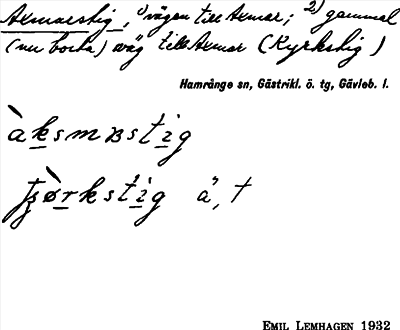 Axmarstig, 1) vägen till Axmar; 2) gammal
(nu borta) väg till Axmar (Kyrkstig)
Hamrånge sn, Gästrikl. ö. tg, Gävleb. l.
àksmʙstig
å, †
EMIL LEMHAGEN 1932